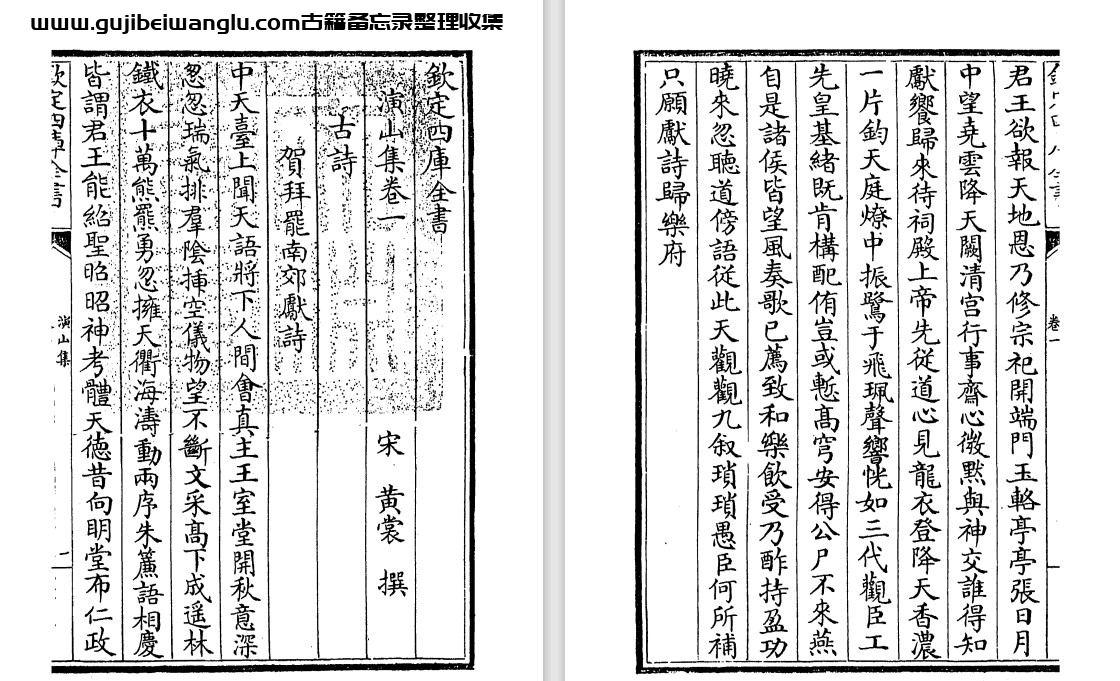 www.gujibeiwanglu.com古籍备忘录整理收集
欽定四庫全書
演山集卷一
宋 黃裳 撰
古詩
賀拜罷南郊獻詩
中天臺上聞天語將下人間會真主王室堂開秋意深
忽忽瑞氣排羣陰揷空儀物望不斷文采髙下成遥林
鐵衣十萬熊羆勇忽擁天衢海濤動兩序朱簾語相慶
皆謂君王能紹聖昭昭神考體天徳昔向明堂布仁政
欽定四庫全書
演山集
卷一
君王欲報天地恩乃修宗祀開端門玉輅亭亭張日月
中望堯雲降天闕清宫行事齋心微黙與神交誰得知
獻饗歸來待祠殿上帝先從道心見龍衣登降天香濃
一片鈞天庭燎中振鷺于飛珮聲響恍如三代觀臣工
先皇基緒既肯構配侑豈或慙髙穹安得公尸不來燕
自是諸侯皆望風奏歌已薦致和樂飲受乃酢持盈功
曉來忽聽道傍語從此天觀觀九叙瑣瑣愚臣何所補
只願獻詩歸樂府